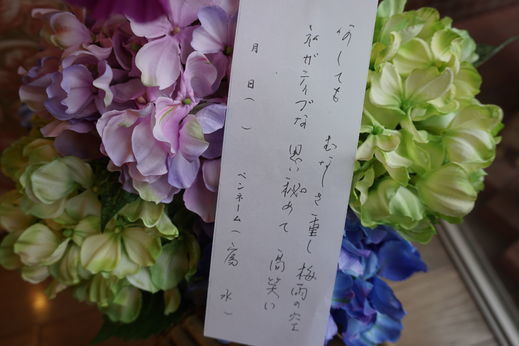 何しても むなしさ重し 梅雨の空
ネガティブな 思い秘めて 高笑い
月 日( ) ペンネーム( 富 水 )